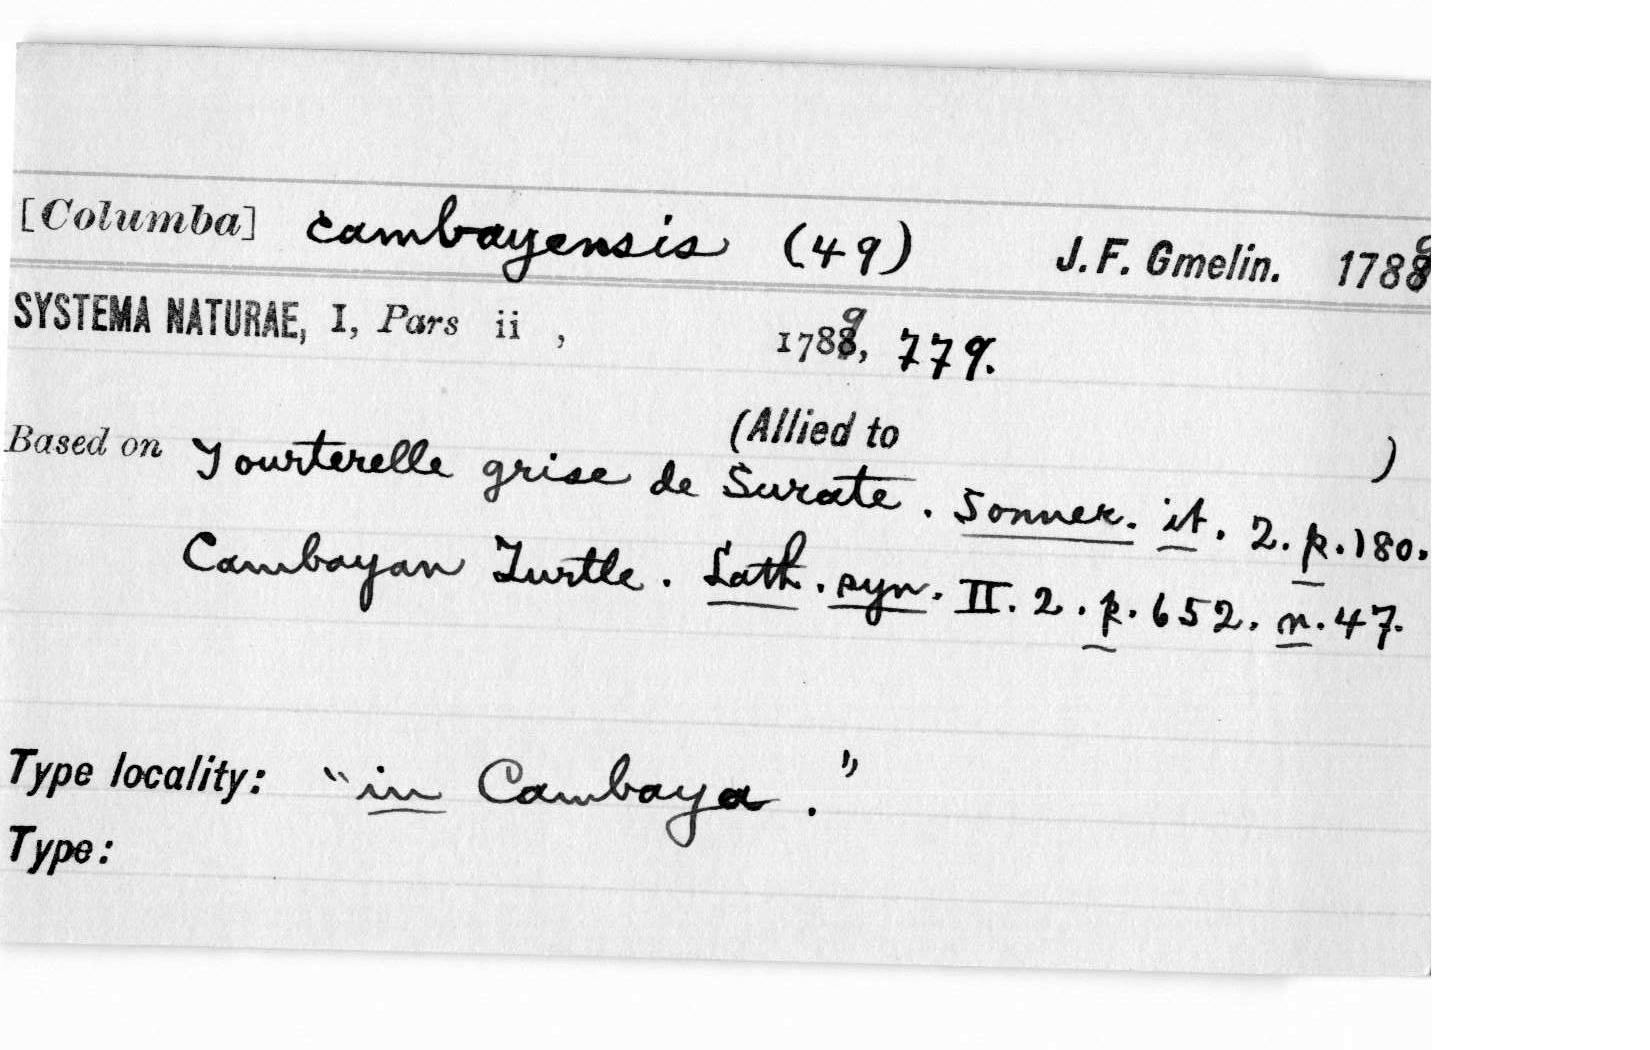 [Columba] cambayensis (49) J. F. Gmelin. 1789
SYSTEMA NATURAE, I, Pars ii , 1789, 779.
(Allied to )
Based on Tourterelle grise de Surate. Sonner. it. 2. p. 180.
Cambayan Turtle. Lath. syn. II. 2. p. 652. n. 47.
Type locality: "in Cambaya."
Type: